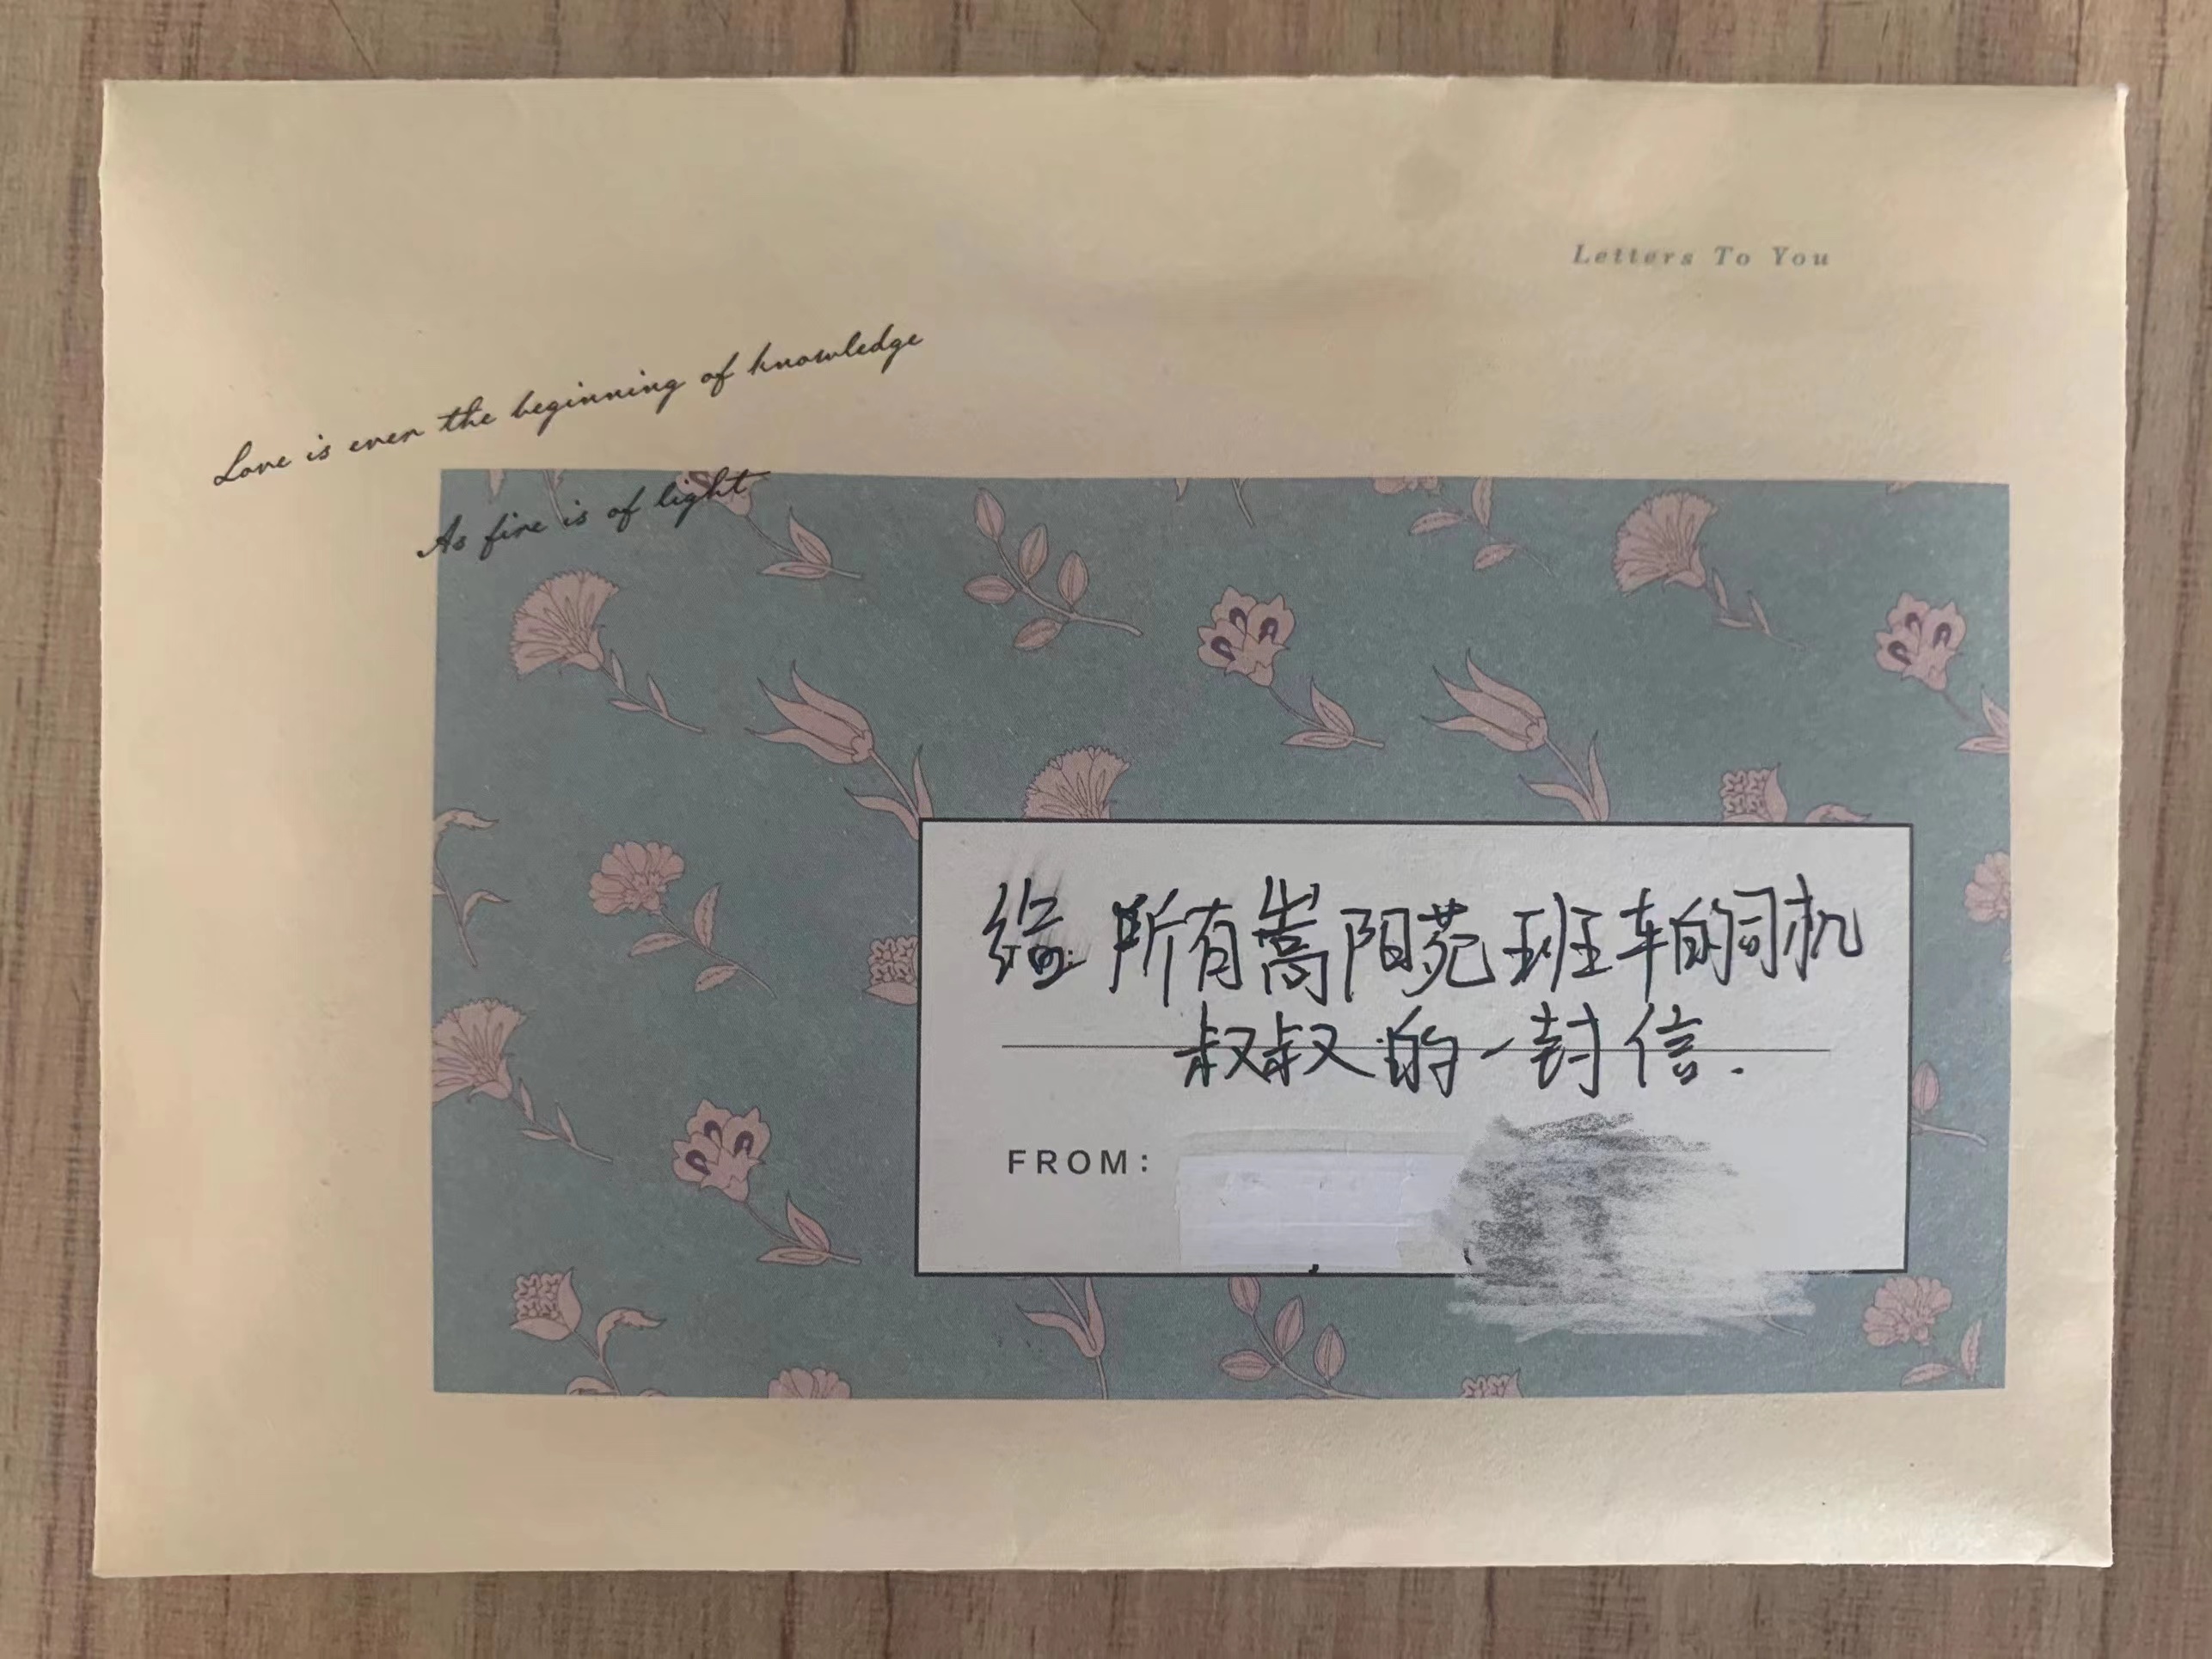 Letters To You
Love is ever the beginning of knowledge
As fire is of light
给 所有嵩阳苑班车的司机
叔叔的一封信.
FROM: